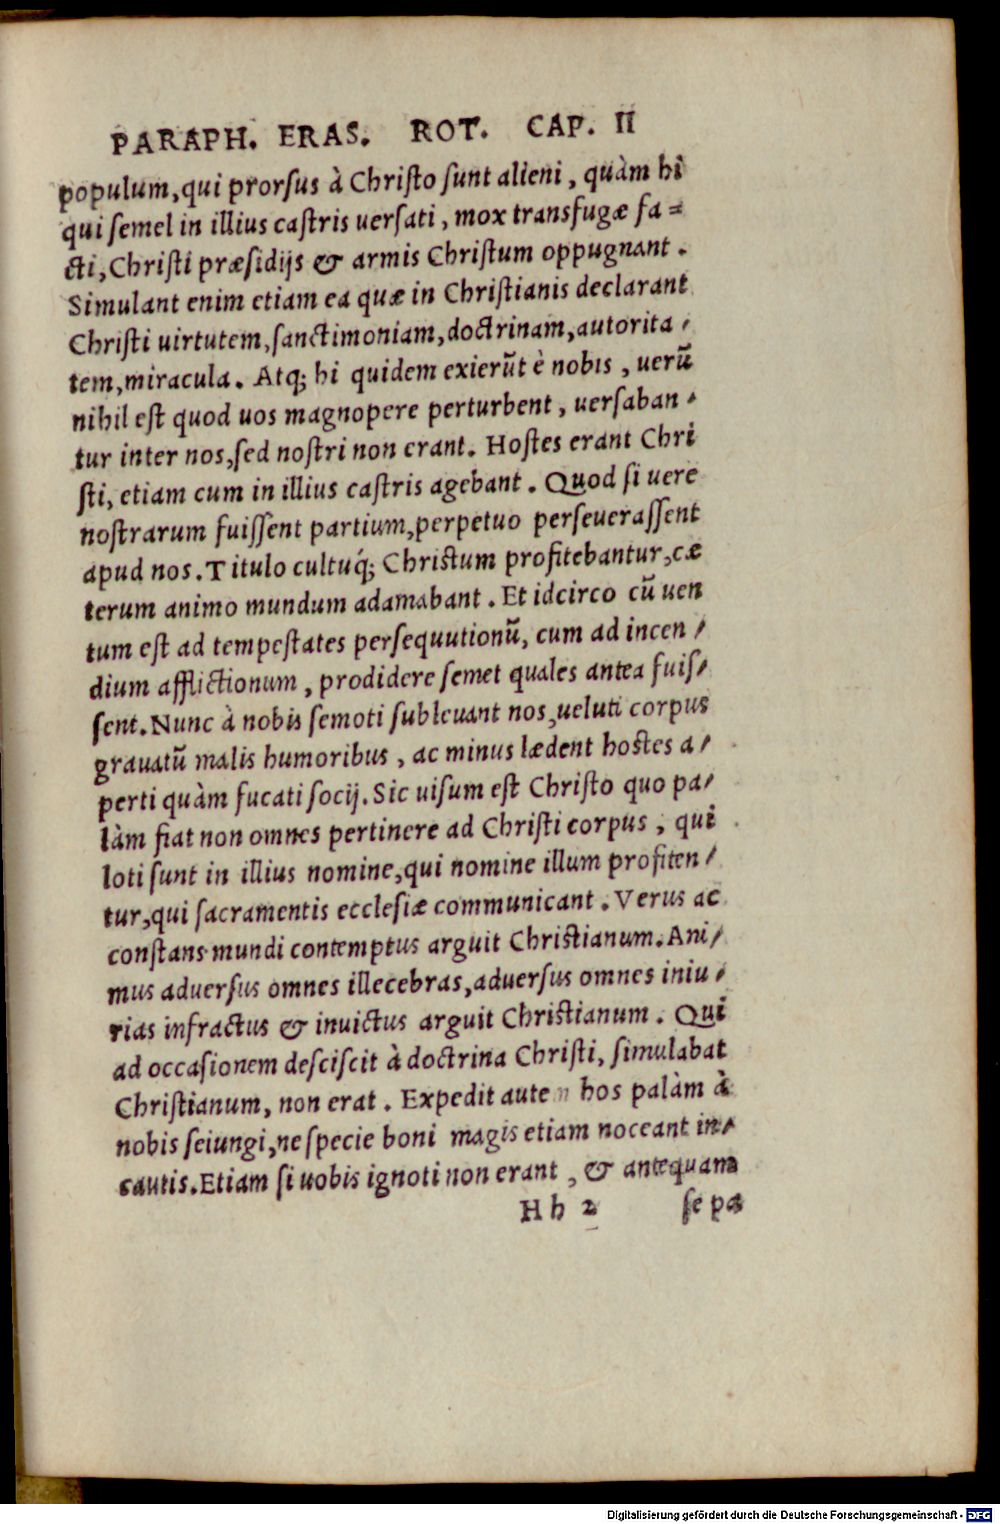 PARAPH. ERAS. ROT. CAP. II
populum, qui prorsus à Christo sunt alieni, quàm hi
qui semel in illius castris uersati, mox transfugæ fa=
cti, Christi præsidijs & armis Christum oppugnant.
Simulant enim etiam ea quæ in Christianis declarant
Christi uirtutem, sanctimoniam, doctrinam, autorita-
tem, miracula. Atq; hi quidem exierũt è nobis, uerũ
nihil est quod uos magnopere perturbent, uersaban-
tur inter nos, sed nostri non erant. Hostes erant Chri
sti, etiam cum in illius castris agebant. Quod si uere
nostrarum fuissent partium, perpetuo perseuerassent
apud nos. Titulo cultuq́; Christum profitebantur, cæ
terum animo mundum adamabant. Et idcirco cũ uen
tum est ad tempestates persequutionũ, cum ad incen-
dium afflictionum, prodidere semet quales antea fuis-
sent. Nunc à nobis semoti subleuant nos, ueluti corpus
grauatũ malis humoribus, ac minus lædent hostes a-
perti quàm fucati socij. Sic uisum est Christo quo pa-
làm fiat non omnes pertinere ad Christi corpus, qui
loti sunt in illius nomine, qui nomine illum profiten-
tur, qui sacramentis ecclesiæ communicant. Verus ac
constans mundi contemptus arguit Christianum. Ani-
mus aduersus omnes illecebras, aduersus omnes iniu-
rias infractus & inuictus arguit Christianum. Qui
ad occasionem desciscit à doctrina Christi, simulabat
Christianum, non erat. Expedit autem hos palàm à
nobis seiungi, ne specie boni magis etiam noceant in-
cautis. Etiam si uobis ignoti non erant, & antequam
Hh 2 se pa
Digitalisierung gefördert durch die Deutsche Forschungsgemeinschaft - DFG